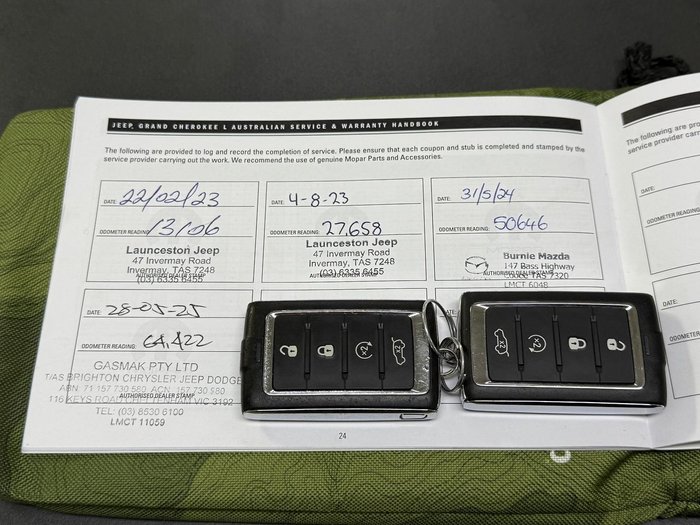 JEEP, GRAND CHEROKEE L AUSTRALIAN SERVICE & WARRANTY HANDBOOK
The following are provided to log and record the completion of service. Please ensure that each coupon and stub is completed and stamped by the
service provider carrying out the work. We recommend the use of genuine Mopar Parts and Accessories.
DATE: 22/02/23
ODOMETER READING: 13106
Launceston Jeep
47 Invermay Road
Invermay, TAS 7248
AUTHORISED DEALER STAMP
(03) 6335 6455
DATE: 4-8-23
ODOMETER READING: 27,658
Launceston Jeep
47 Invermay Road
Invermay, TAS 7248
AUTHORISED DEALER STAMP
(03) 6335 6455
DATE: 31/5/24
ODOMETER READING: 50646
Burnie Mazda
147 Bass Highway
AUTHORISED DEALER STAMP
TAS 7320
LMCT 6048
DATE: 28-05-25
ODOMETER READING: 64,422
GASMAK PTY LTD
T/AS BRIGHTON CHRYSLER JEEP DODGE
ABN: 71 157 730 580 ACN: 157 730 580
AUTHORISED DEALER STAMP
116 KEYS ROAD CHELTENHAM VIC 3192
TEL: (03) 8530 6100
LMCT 11059
24
The following are pro
service provider carry
DATE:
ODOMETER READING:
DATE:
ODOMETER READING:
x2
x2